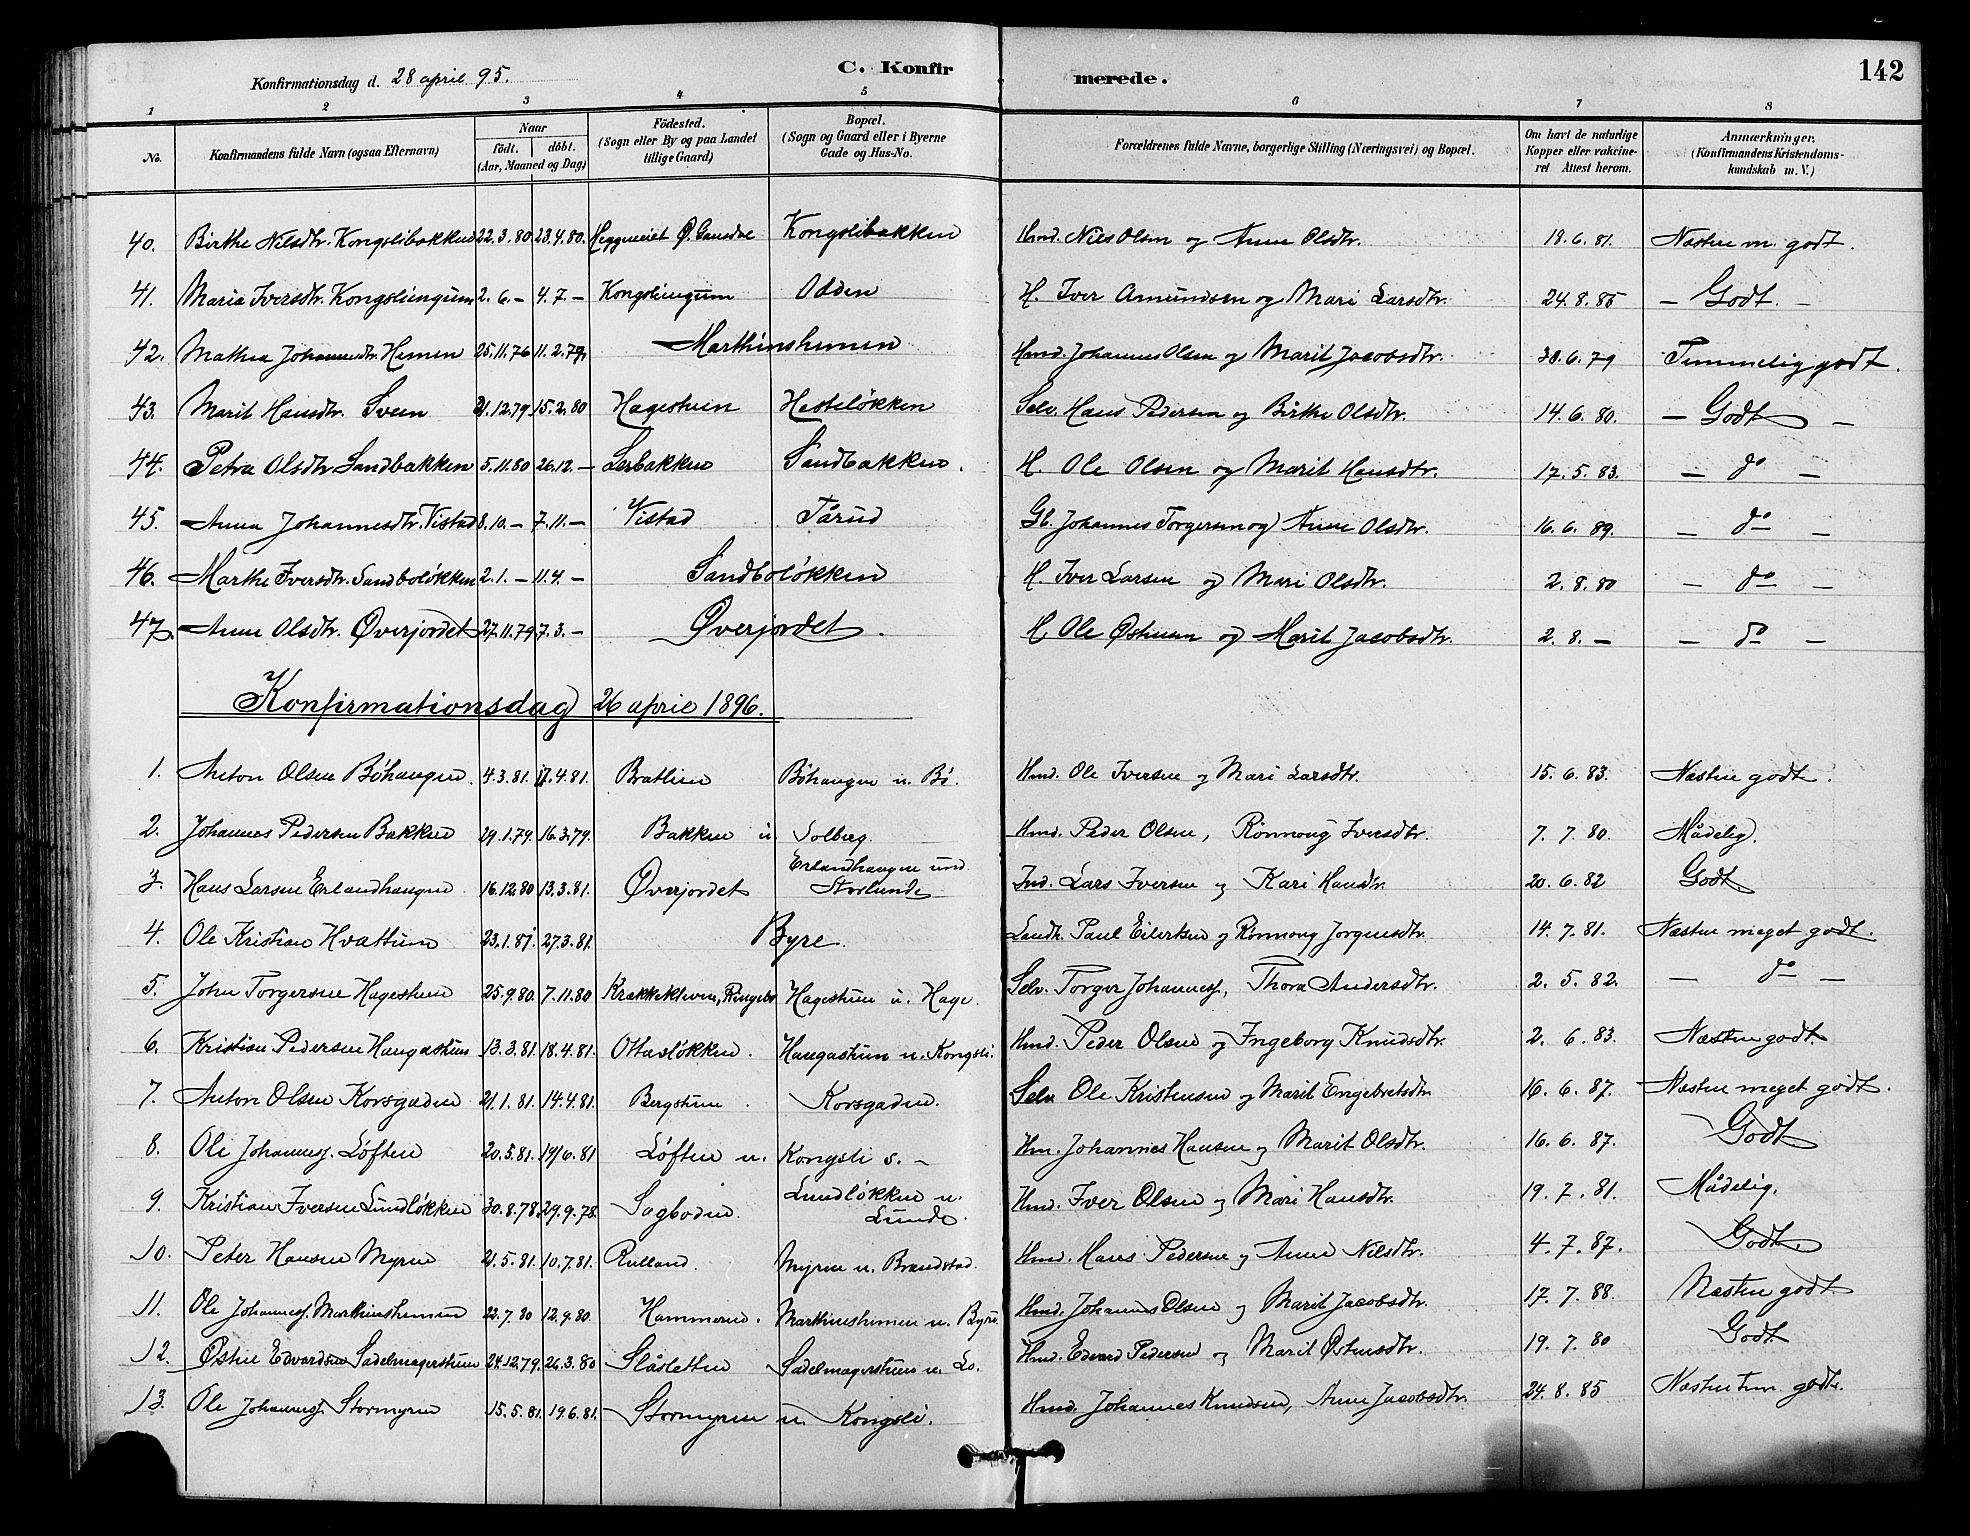 142
Konfirmationsdag d. 28 april 95.
C. Konfir merede.
1 2 3 4 5 6 7 8
No. Konfirmandens fulde Navn (ogsaa Efternavn) Naar födt. döbt. (Aar, Maaned og Dag) Födested. (Sogn eller By og paa Landet tillige Gaard) Bopæl. (Sogn og Gaard eller i Byerne Gade og Hus-No. Forældrenes fulde Navne, borgerlige Stilling (Næringsvei) og Bopæl. Om havt de naturlige Kopper eller vakcineret Attest herom. Anmærkninger, (Konfirmandens Kristendomskundskab m. V.)
40. Birthe Nilsdtr. Kongslibakken 22.3.80 23.4.80. Kongslibakken Hmd. Nils Olsen og Anne Olsdtr. 18.6.81. Næsten m. godt.
41. Maria Iversdtr. Kongsliengum 2.6.– 4.7– Kongsliengum Odden H. Iver Amundsen og Mari Larsdtr. 24.8.85 – Godt. –
42. Mathea Johannesdtr. Hemen 25.11.76 11.2.79. Marthinshemen Hmd. Johannes Olsen og Marit Jacobsdtr. 30.6.79 Temmelig godt.
43. Marit Hansdtr. Sveen 21.12.79. 15.2.80 Hagestuen Hesteløkken Selv. Hans Pedersen og Birthe Olsdtr. 14.6.80. – Godt –
44. Petra Olsdtr Sandbakken 5.11.80 26.12.– Lerbakken Sandbakken. H. Ole Olsen og Marit Hansdtr. 17.5.83. – do –
45. Anna Johannesdtr. Vistad 8.10.– 7.11.– Vistad Tårud Gb. Johannes Torgersen og Anne Olsdtr. 16.6.89. – do –
46. Marthe Iversdtr. Sandboløkken 2.1.– 11.4.– Sandboløkken H. Iver Larsen og Mari Olsdtr. 2.8.80 – do –
47. Anne Olsdtr. Øverjordet 27.11.79 7.3.– Øverjordet. H. Ole Østensen og Marit Jacobsdtr. 2.8.– – do –
Konfirmationsdag 26 april 1896.
1. Anton Olsen Bøhaugen 4.3.81. 17.4.81. Bratlien Bøhaugen u. Bø. Hmd. Ole Iversen og Mari Larsdtr. 15.6.83. Næsten godt.
2. Johannes Pedersen Bakken 29.1.79. 16.3.79. Bakken u Solberg. Hmd. Peder Olsen, Rønnoug Iversdtr. 7.7.80. Mådelig.
3. Hans Larsen Erlandhaugen 16.12.80 13.3.81. Øverjordet Erlandhaugen und. Norlunde Ind. Lars Iversen og Kari Hansdtr. 20.6.82 Godt.
4. Ole Kristian Hvattum 23.1.81. 27.3.81. Byre. Landh. Paul Eilertsen og Rønnoug Jørgensdtr. 14.7.81. Næsten meget godt.
5. John Torgersen Hagestuen 25.9.80. 7.11.80 Krækkekleven, Ringebu Hagestuen u. Hage. Selv. Torger Johannesf, Thora Andersdtr. 2.5.82. – do –
6. Kristian Pedersen Haugastuen 13.3.81. 18.4.81. Ottarsløkken. Haugastuen u. Kongsli. Hmd. Peder Olsen og Ingeborg Knudsdtr. 2.6.83. Næsten godt.
7. Anton Olsen Korsgaden 21.1.81. 14.4.81. Bergstuen. Korsgaden. Selv Ole Kristensen og Marit Engebretsdtr. 16.6.87. Næsten meget godt.
8. Ole Johannesf. Løften 20.5.81. 19/6.81 Løften u. Kongsli s. – Hm. Johannes Hansen og Marit Olsdtr. 16.6.87. Godt
9. Kristian Iversen Lundløkken 30.8.78. 29.9.78. Sagboden. Lundløkken u. Lunde. Hmd. Iver Olsen og Mari Hansdtr. 19.7.81. Mådelig.
10. Peter Hansen Myren 21.5.81. 10.7.81. Rulland. Myren u. Brandstad. Hmd. Hans Pedersen og Anne Nilsdtr. 4.7.87. Godt.
11. Ole Johannesf. Marthinshemen 22.7.80 12.9.80. Hammeren. Marthinshemen u. Byre. Hmd. Johannes Olsen og Marit Jacobsdtr. 17.7.88. Næsten godt
12. Østen Edvardsen Sadelmagerstuen 24.12.79. 26.3.80 Slåsletten Sadelmagerstuen u. Lo. Hmd. Edvard Pedersen og Marit Østensdtr. 19.7.80 Godt
13. Ole Johannesf. Stormyren 15.5.81. 19.6.81. Stormyren u. Kongsli. Hmd. Johannes Knudsen, Anne Jacobsdtr. 24.8.85 Næsten tem. godt.